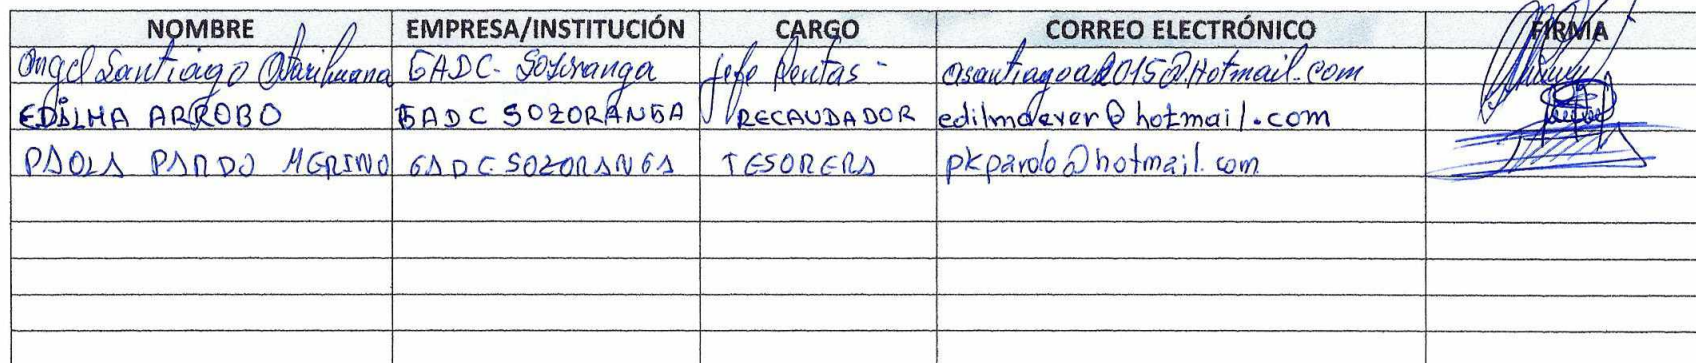 NOMBRE EMPRESA/INSTITUCIÓN CARGO CORREO ELECTRÓNICO FIRMA
Angel Santiago GADC. Sozoranga Jefe Rentas - asantiagoa2015@Hotmail.com
EDILMA ARROBO GADC SOZORANGA RECAUDADOR edilmaever@hotmail.com
PAOLA PARDO MERINO GADC SOZORANGA TESORERA pkpardo@hotmail.com